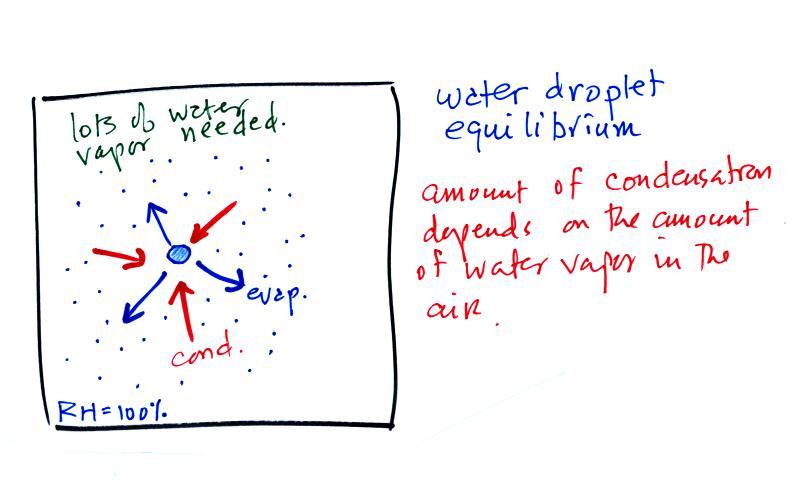 lots of water
vapor needed.
evap.
cond.
RH=100%
water droplet
equilibrium
amount of condensation
depends on the amount
of water vapor in the
air.